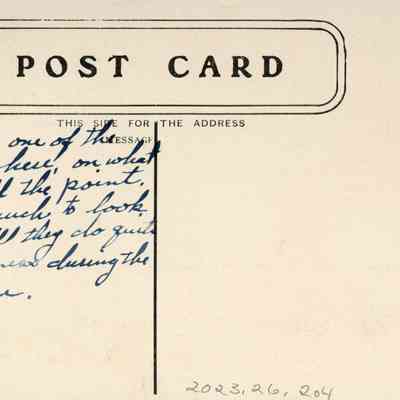 POST CARD
THIS SIDE FOR THE ADDRESS
MESSAGE
one of the
here, on what
the point.
much to look
they do quite
during the
2023.26.204